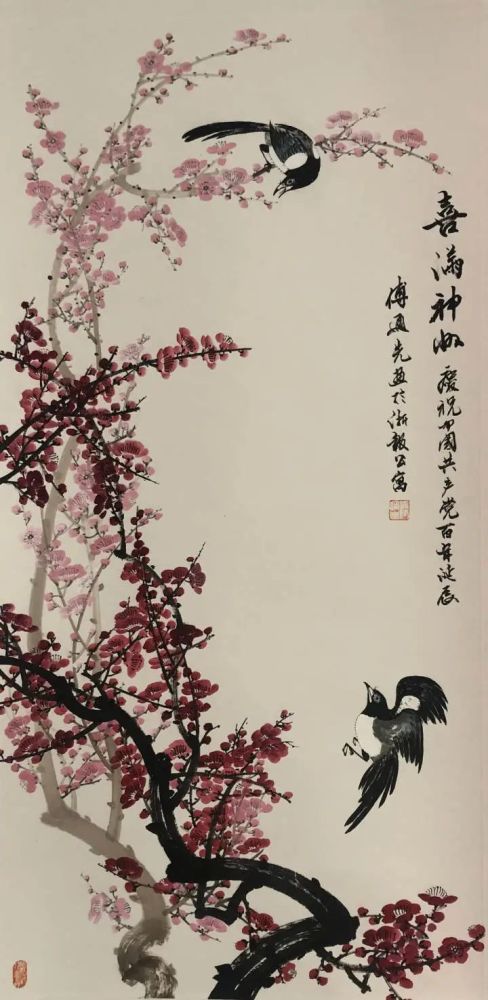 喜满神州 庆祝中国共产党百年诞辰
傅通先画于浙报公寓